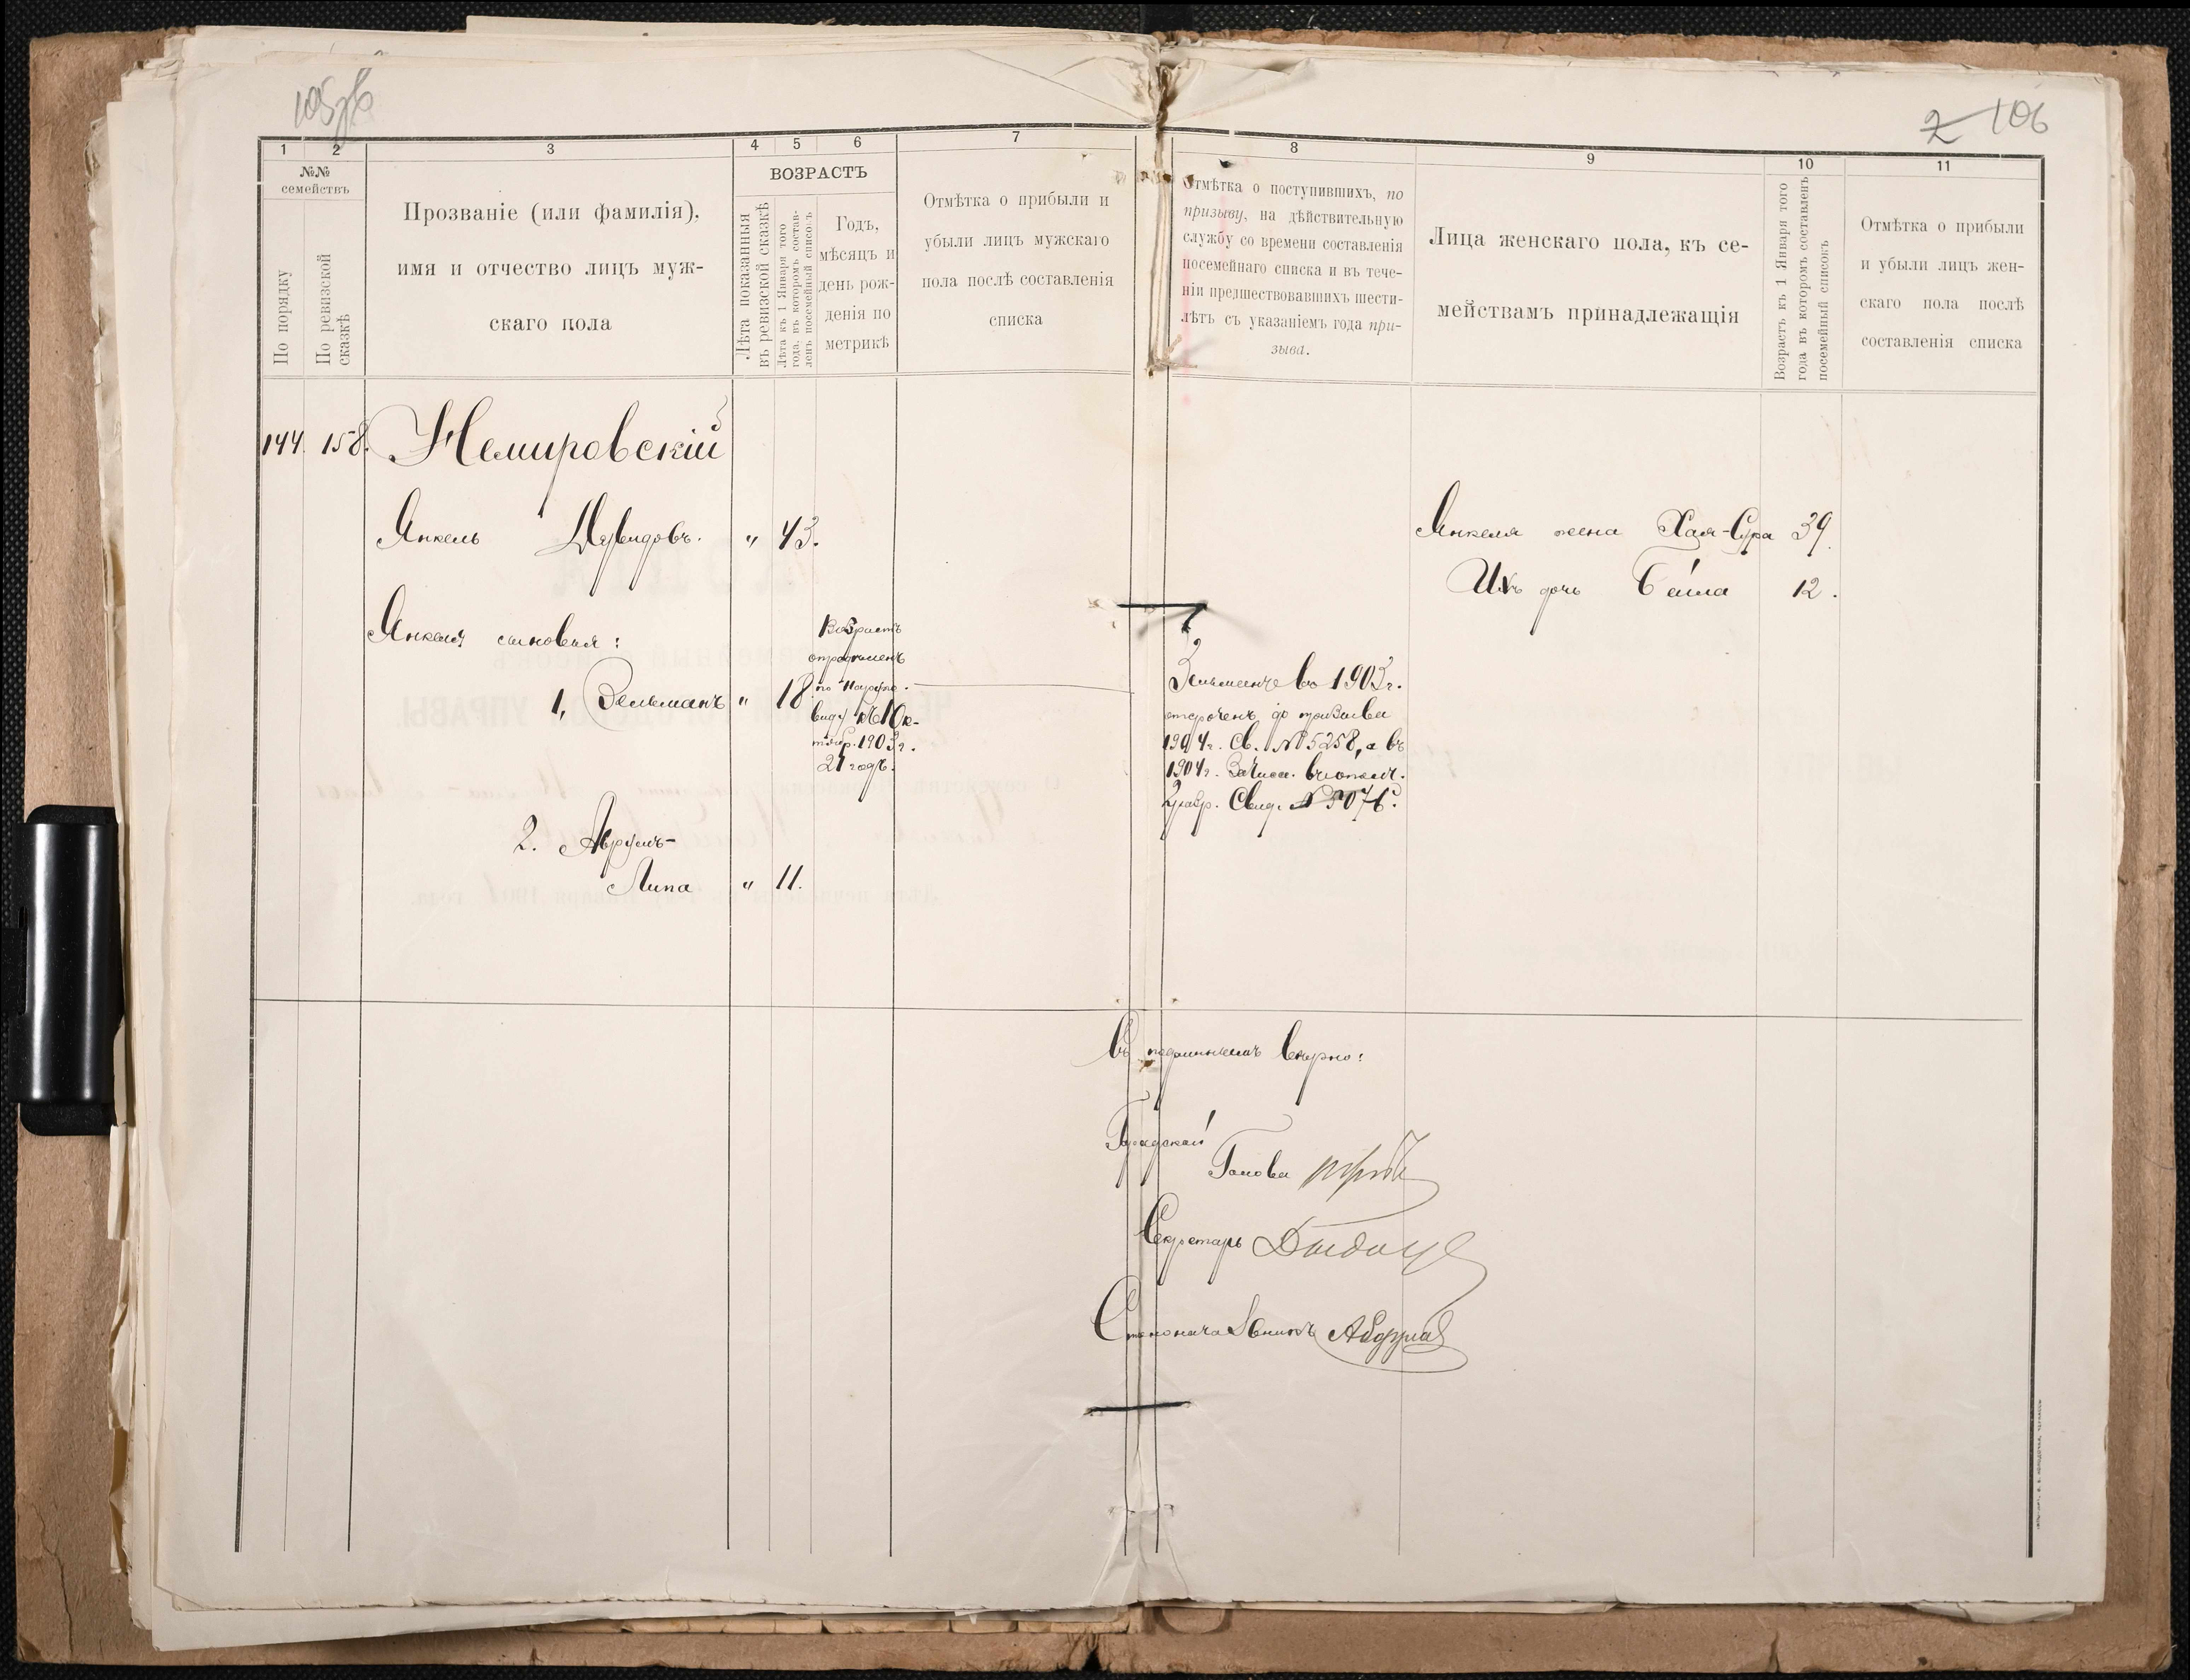 105об
2 106
1 2 3 4 5 6 7 8 9 10 11
№№
семействъ
По порядку
По ревизской
сказкѣ
Прозваніе (или фамилія),
имя и отчество лицъ муж-
скаго пола
ВОЗРАСТЪ
Лѣта показанныя
въ ревизской сказкѣ
Лѣта къ 1 Января того
года, въ которомъ состав-
ленъ посемейный списокъ
Годъ,
мѣсяцъ и
день рож-
денія по
метрикѣ
Отмѣтка о прибыли и
убыли лицъ мужскаго
пола послѣ составленія
списка
Отмѣтка о поступившихъ, по
призыву, на дѣйствительную
службу со времени составленія
посемейнаго списка и въ тече-
ніи предшествовавшихъ шести-
лѣтъ съ указаніемъ года при-
зыва.
Лица женскаго пола, къ се-
мействамъ принадлежащія
Возрастъ къ 1 Января того
года въ которомъ составленъ
посемейный списокъ
Отмѣтка о прибыли
и убыли лицъ жен-
скаго пола послѣ
составленія списка
144. 158. Немировскій
Янкель Дувидовъ. " 43.
Янкеля сыновья:
1, Зельманъ " 18
Возрастъ
опредѣленъ
по наружн.
виду къ 1 Ок-
тябр. 1903 г.
21 годъ.
2. Аврумъ-
Липа " 11.
Зельману въ 1903 г.
отсроченъ до призыва
1904 г. Св. № 5258, а въ
1904 г. Зачисл. въ ополч.
2 разр. Свид. № 5076.
Янкеля жена Хая-Сура 39.
Ихъ дочь Бейла 12.
Съ подлиннымъ вѣрно:
Городской
Голова
Секретарь
Столоначальникъ